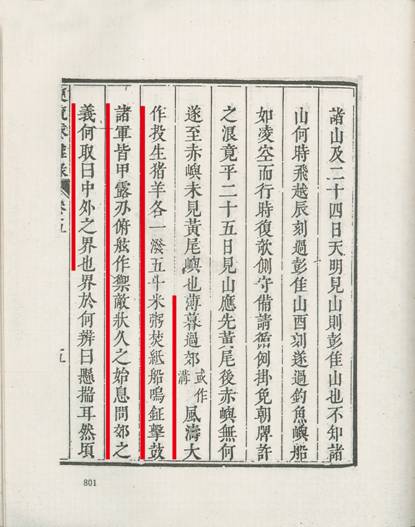 諸山及二十四日天明見山則彭佳山也不知諸
山何時飛越辰刻過彭佳山酉刻遂過釣魚嶼船
如凌空而行時復欹側守備請循例掛免朝牌許
之浪竟平二十五日見山應先黃尾後赤嶼無何
遂至赤嶼未見黃尾嶼也薄暮過郊或作溝風濤大
作投生猪羊各一潑五斗米粥焚紙船鳴鉦擊鼓
諸軍皆甲露刃俯舷作禦敵狀久之始息問郊之
義何取曰中外之界也界於何辨曰懸揣耳然頃
卷五 五
801